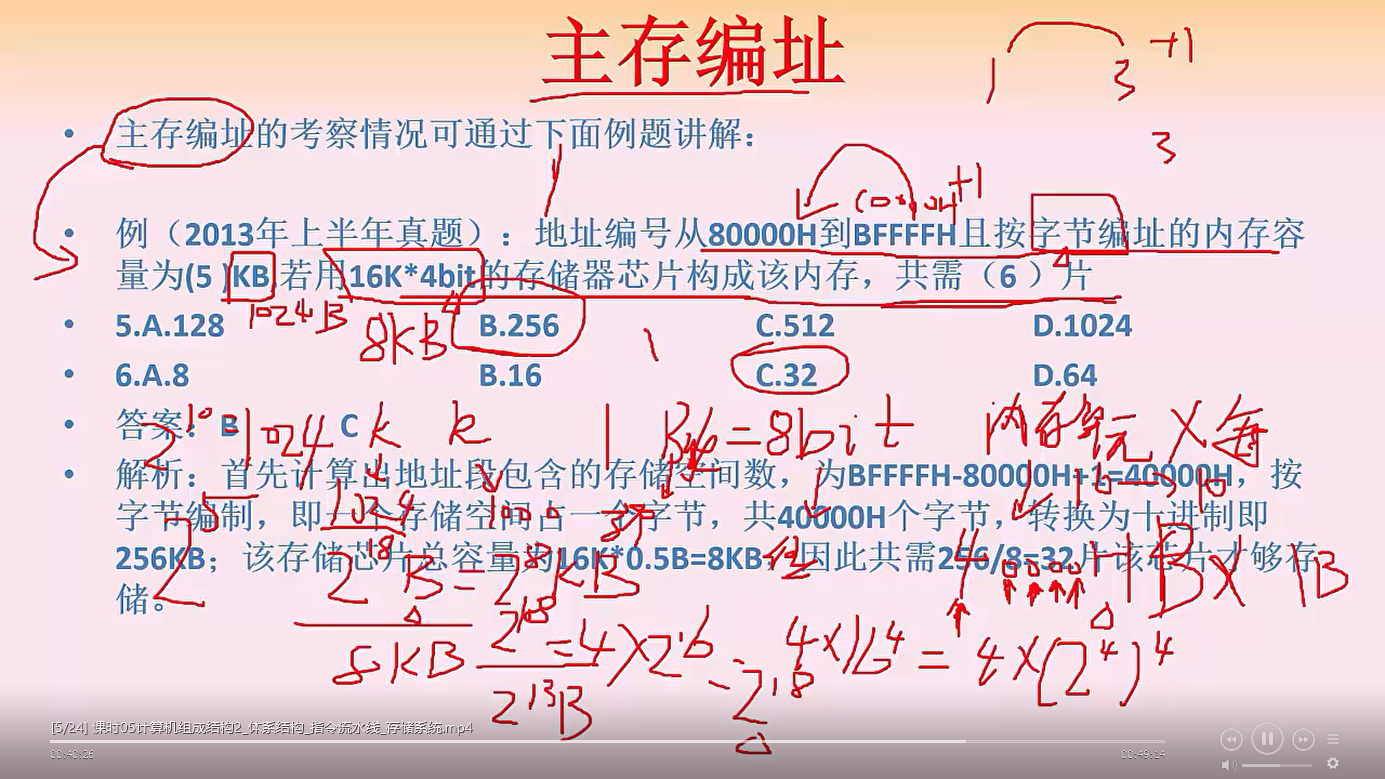 主存编址
1 3 +1
3
主存编址的考察情况可通过下面例题讲解：
+1
例（2013年上半年真题）：地址编号从80000H到BFFFFH且按字节编址的内存容
量为(5 )KB,若用16K*4bit的存储器芯片构成该内存，共需（6 ）片
1024B
5.A.128 B.256 C.512 D.1024
8KB
6.A.8 B.16 C.32 D.64
答案：B C
2^10=1024 K k 1 B = 8bit 内存单元 × 每
解析：首先计算出地址段包含的存储空间数，为BFFFFH-80000H+1=40000H，按
1024 1000
字节编制，即一个存储空间占一个字节，共40000H个字节，转换为十进制即
256KB；该存储芯片总容量为16K*0.5B=8KB，因此共需256/8=32片该芯片才够存
储。
2^5
2^18 B = 2^8 KB
8KB
2^18
2^13B
=4×2^16
=2^18
4×16^4 = 4×(2^4)^4
×1B
[5/24] 课时05计算机组成结构2_体系结构_指令流水线_存储系统.mp4
00:40:26 00:49:14